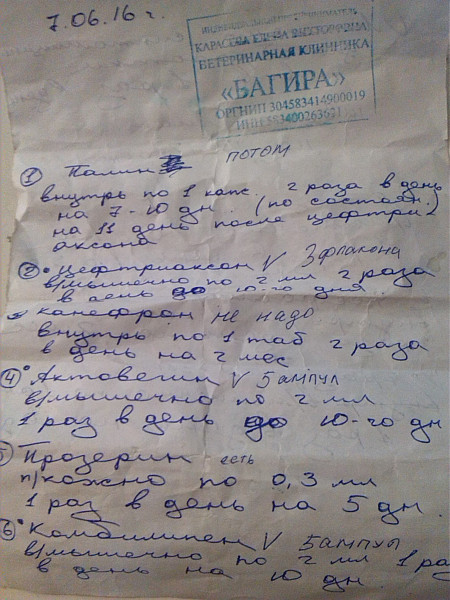 7.06.16 г.
ИНДИВИДУАЛЬНЫЙ ПРЕДПРИНИМАТЕЛЬ
КАРАСЕВА ЕЛЕНА ВИКТОРОВНА
ВЕТЕРИНАРНАЯ КЛИНИКА
«БАГИРА»
ОГРНИП 304583414900019
ИНН 583400263671
① Палин потом
внутрь по 1 капс. 2 раза в день
на 7-10 дн. (по состоян.)
на 11 день после цефтри
аксона
② Цефтриаксон V 3 флакона
в/мышечно по 2 мл 2 раза
в день до 10-го дня.
Канефрон не надо
внутрь по 1 таб 2 раза
в день на 2 мес
④ Актовегин V 5 ампул
в/мышечно по 2 мл
1 раз в день до 10-го дн
5 Прозерин есть
п/кожно по 0,3 мл
1 раз в день на 5 дн.
⑥ Комбилипен V 5 ампул
в/мышечно по 2 мл 1 раз
в день на 10 дн.